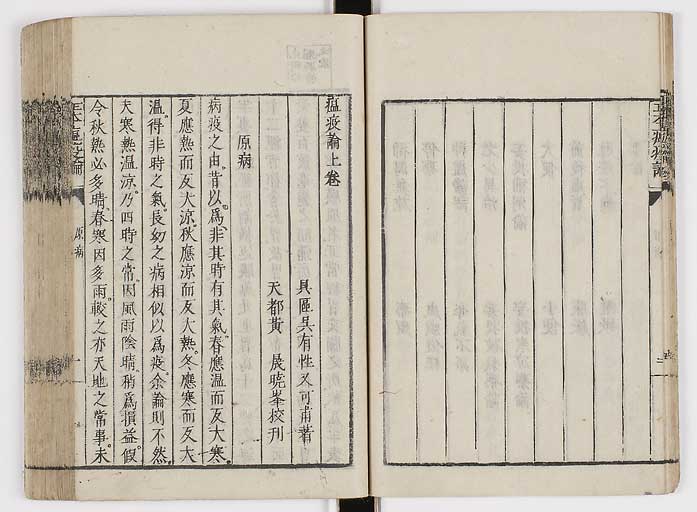 瘟疫論上卷
具區吳有性又可甫著
天都黃　晟曉峯校刊
原病
病疫之由昔以爲非其時有其氣春應温而反大寒
夏應熱而反大涼秋應涼而反大熱冬應寒而反大
温得非時之氣長幼之病相似以爲疫余論則不然
夫寒熱温涼乃四時之常因風雨陰晴稍爲損益假
令秋熱必多晴春寒因多雨較之亦天地之常事未
原病